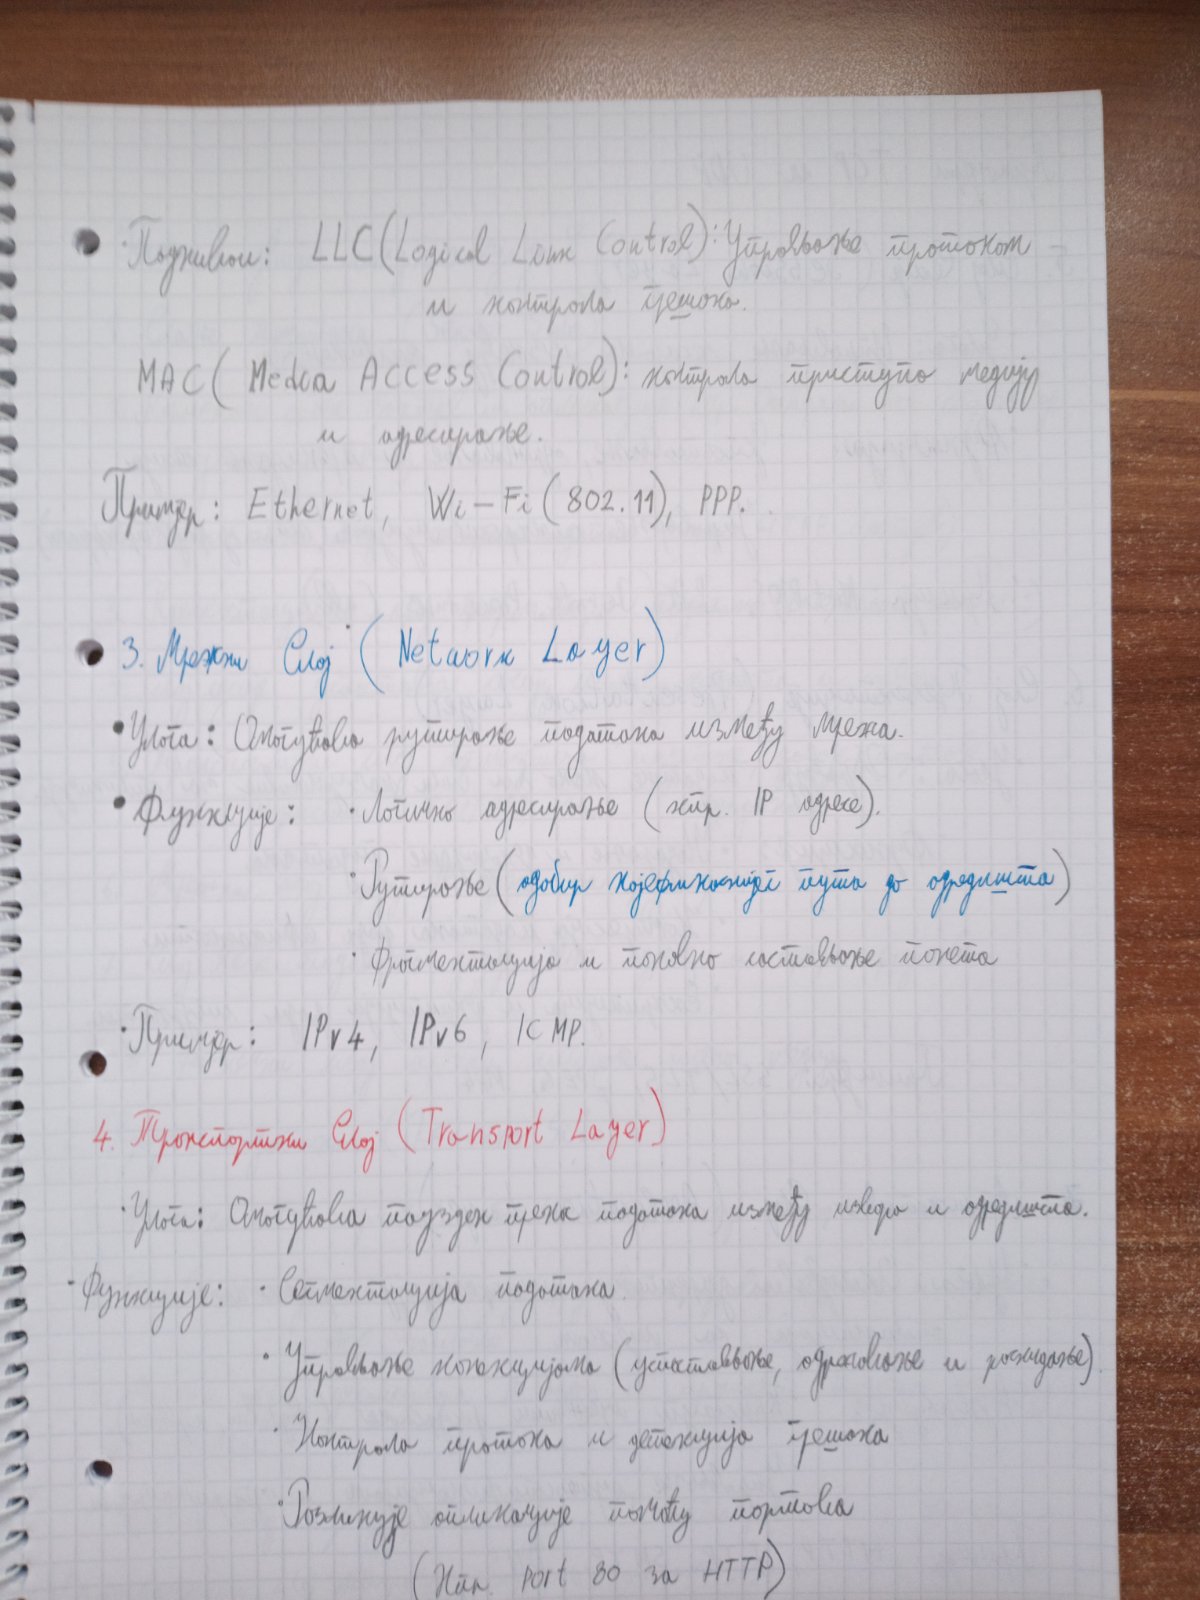 · Поднивои: LLC (Logical Link Control): Управљање протоком
и контрола грешака.
MAC (Media Access Control): контрола приступа медију
и адресирање.
Пример: Ethernet, Wi-Fi (802.11), PPP.
3. Мрежни Слој (Network Layer)
• Улога: Омогућава рутирање података између мрежа.
• Функције: · Логичко адресирање (нпр. IP адресе).
· Рутирање (одабир најефикаснијег пута до одредишта)
· Фрагментација и поновно састављање пакета
· Пример: IPv4, IPv6, ICMP.
4. Транспортни Слој (Transport Layer)
· Улога: Омогућава поуздан пренос података између извора и одредишта.
· Функције: · Сегментација података.
· Управљање конекцијама (успостављање, одржавање и раскидање).
· Контрола протока и детекција грешака
· Разликује апликације помоћу портова
(Нпр. port 80 за HTTP)